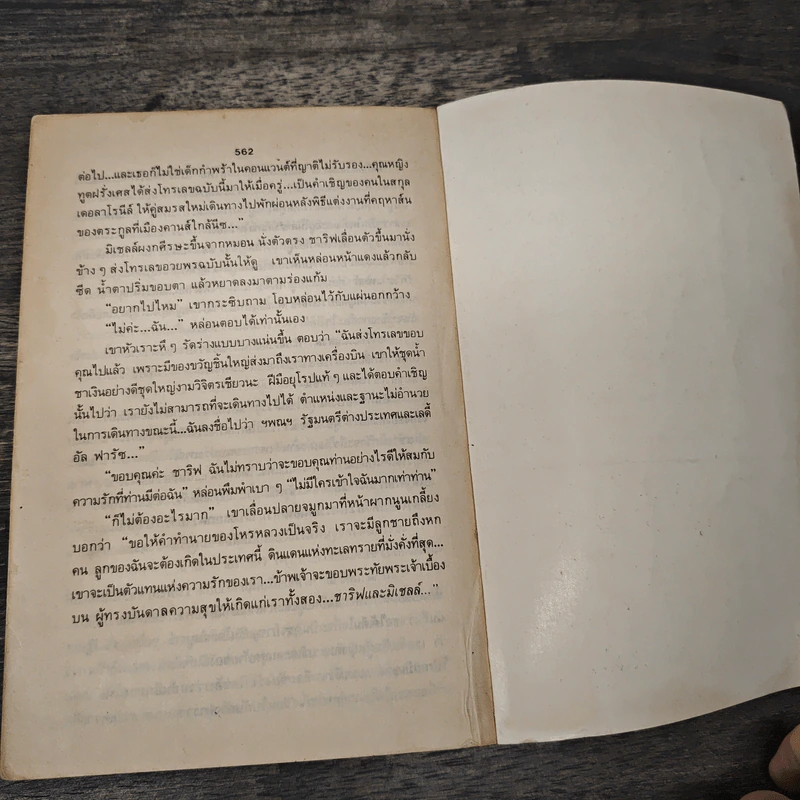 562
ต่อไป...และเธอก็ไม่ใช่เด็กกำพร้าในคอนแวนต์ที่ญาติไม่รับรอง...คุณหญิง
ทูตฝรั่งเศสได้ส่งโทรเลขฉบับนี้มาให้เมื่อครู่...เป็นคำเชิญของคนในสกุล
เดอลาโรนีล์ ให้คู่สมรสใหม่เดินทางไปพักผ่อนหลังพิธีแต่งงานที่คฤหาส์น
ของตระกูลที่เมืองคานส์ใกล้นีซ..."
มิเชลล์ผงกศีรษะขึ้นจากหมอน นั่งตัวตรง ชารีฟเลื่อนตัวขึ้นมานั่ง
ข้าง ๆ ส่งโทรเลขอวยพรฉบับนั้นให้ดู เขาเห็นหล่อนหน้าแดงแล้วกลับ
ซีด น้ำตาปริ่มขอบตา แล้วหยาดลงมาตามร่องแก้ม
"อยากไปไหม" เขากระซิบถาม โอบหล่อนไว้กับแผ่นอกกว้าง
"ไม่ค่ะ...ฉัน..." หล่อนตอบได้เท่านั้นเอง
เขาหัวเราะหึ ๆ รัดร่างแบบบางแน่นขึ้น ตอบว่า "ฉันส่งโทรเลขขอบ
คุณไปแล้ว เพราะมีของขวัญชิ้นใหญ่ส่งมาถึงเราทางเครื่องบิน เขาให้ชุดน้ำ
ชาเงินอย่างดีชุดใหญ่งามวิจิตรเชียวนะ ฝีมือยุโรปแท้ ๆ และได้ตอบคำเชิญ
นั้นไปว่า เรายังไม่สามารถที่จะเดินทางไปได้ ตำแหน่งและฐานะไม่อำนวย
ในการเดินทางขณะนี้...ฉันลงชื่อไปว่า ฯพณฯ รัฐมนตรีต่างประเทศและเลดี้
อัล ฟารัซ..."
"ขอบคุณค่ะ ชารีฟ ฉันไม่ทราบว่าจะขอบคุณท่านอย่างไรดีให้สมกับ
ความรักที่ท่านมีต่อฉัน" หล่อนพึมพำเบา ๆ "ไม่มีใครเข้าใจฉันมากเท่าท่าน"
"ก็ไม่ต้องอะไรมาก" เขาเลื่อนปลายจมูกมาที่หน้าผากนูนเกลี้ยง
บอกว่า "ขอให้คำทำนายของโหรหลวงเป็นจริง เราจะมีลูกชายถึงหก
คน ลูกของฉันจะต้องเกิดในประเทศนี้ ดินแดนแห่งทะเลทรายที่มั่งคั่งที่สุด...
เขาจะเป็นตัวแทนแห่งความรักของเรา...ข้าพเจ้าจะขอบพระทัยพระเจ้าเบื้อง
บน ผู้ทรงบันดาลความสุขให้เกิดแก่เราทั้งสอง...ชารีฟและมิเชลล์..."